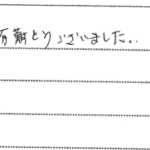 有難とうございました.